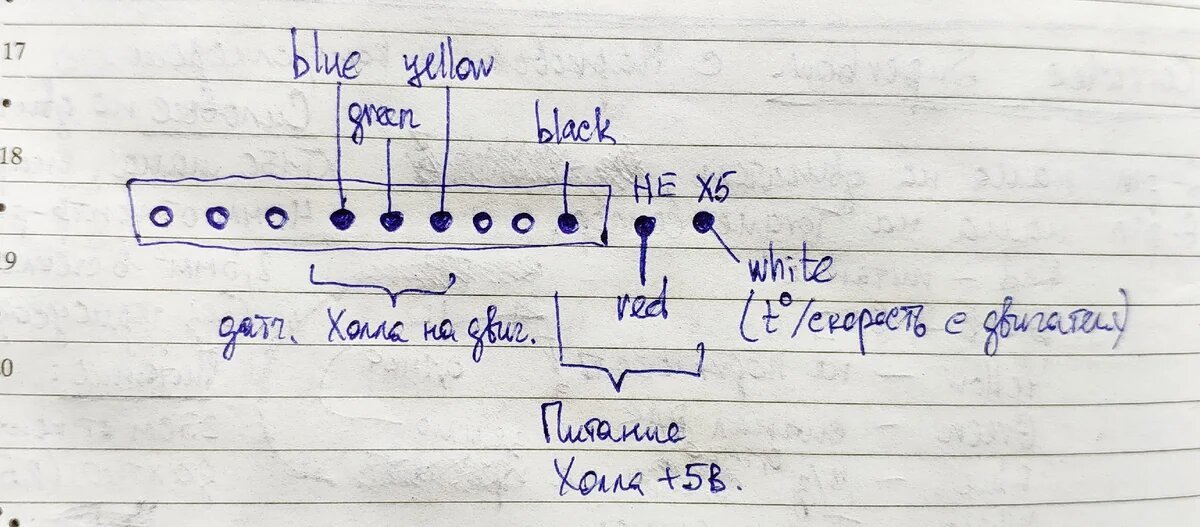 17
blue yellow
green
black
18
НЕ X5
white
red
(t°/скорость с двигателя)
датч. Холла на двиг.
Питание
Холла +5В.